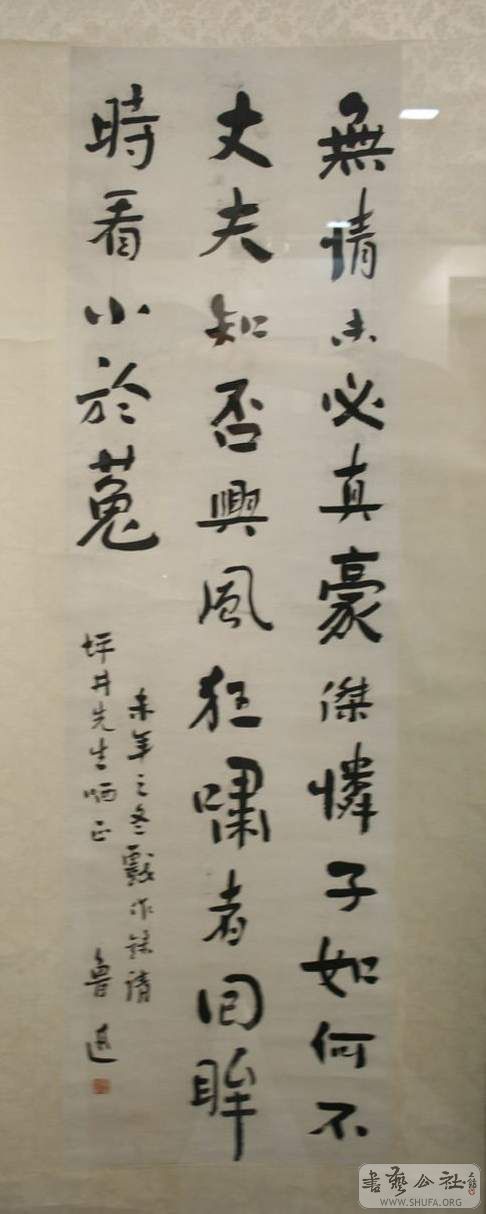 無情未必真豪傑憐子如何不
丈夫知否興風狂嘯者回眸
時看小於菟
未年之冬戲作錄請
坪井先生哂正
魯迅
書藝公社
WWW.SHUFA.ORG